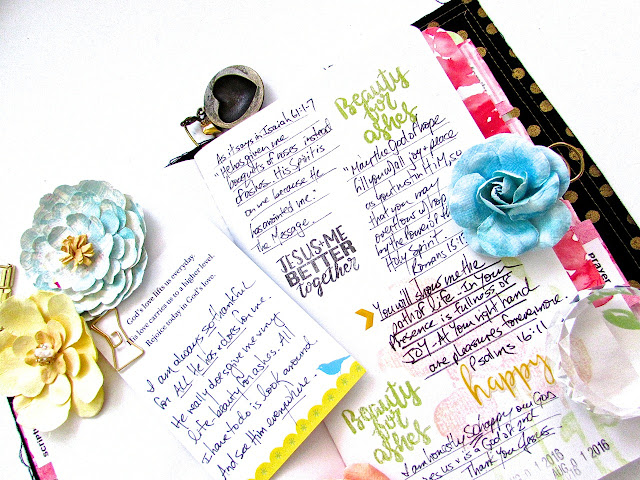 As it says in Isaiah 61:1-7
"He has given me
bouquets of roses instead
of ashes. His Spirit is
on me because He
has anointed me."
The Message.
JESUS+ME
BETTER
together
God's love lifts us everyday,
His love carries us to a higher level.
Rejoice today in God's love.
I am always so thankful
for ALL He has + does for me.
He really does give me my
life- beauty for ashes. All
I have to do is look around
And see Him everywhere.
Beauty
for
ashes
"May the God of hope
fill you w/all joy + peace
as you trust in Him, so
that you may
overflow w/hope
by the power of the
Holy Spirit."
Romans 15:13
You will show me the
path of life. In Your
presence is fullness of
JOY. At Your right hand
are pleasures forevermore.
Psalms 16:11
happy
Beauty
for
ashes
I am honestly so happy our God
is a God of 2nd
Thank you Jesus.
AUG 0 1 2016
prayer